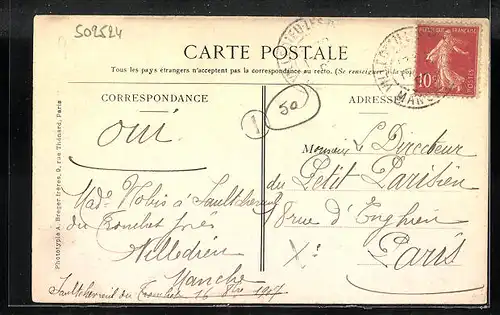 502524
CARTE POSTALE
Tous les pays étrangers n'acceptent pas la correspondance au recto. (Se renseigner à la
CORRESPONDANCE
ADRESSE
RÉPUBLIQUE FRANÇAISE
10c
POSTES
MANCHE
50
1
oui
Mad. Nobis à Saultchevreuil
du Tronchet près
Villedieu
Manche
Saultchevreuil du Tronchet 16 8bre 1907
Monsieur le Directeur
du Petit Parisien
8 rue d'Enghien
Xe
Paris
Phototypie A. Breger frères, 9, rue Thénard, Paris